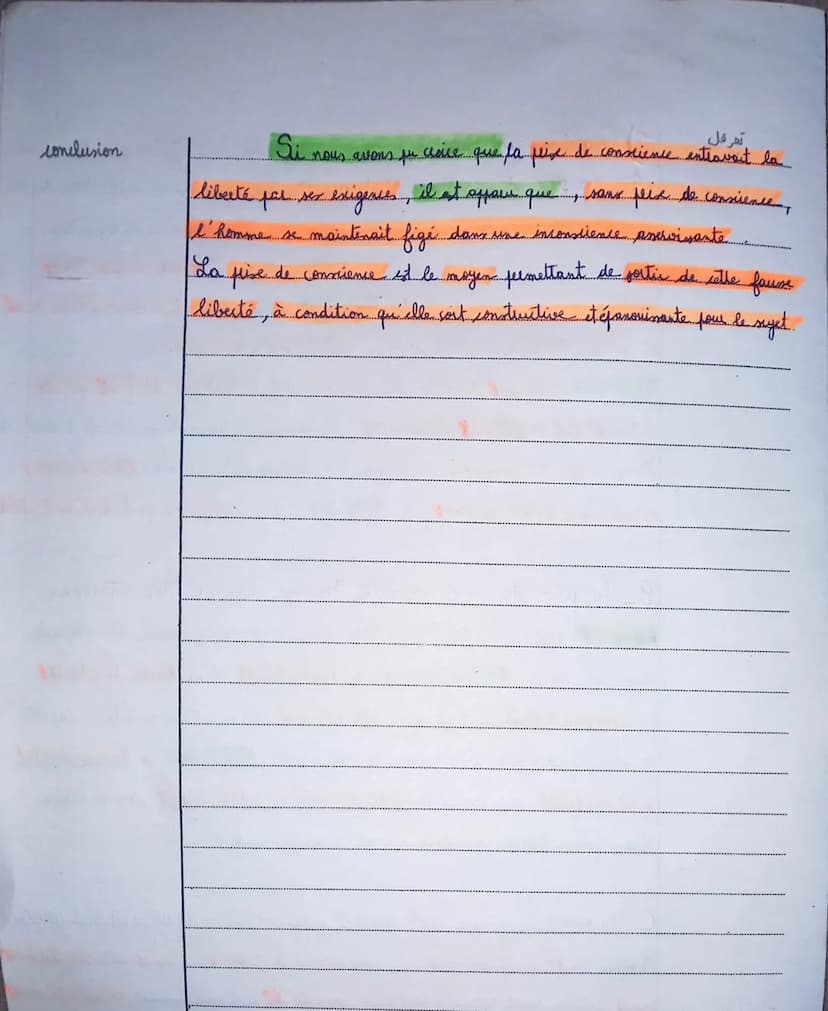 conclusion
تعرقل
Si nous avons pu croire que la prise de conscience entravait la
liberté par ses exigences, il est apparu que, sans prise de conscience,
l'homme se maintenait figé dans une inconscience asservissante.
La prise de conscience est le moyen permettant de sortir de cette fausse
liberté, à condition qu'elle soit constructive et épanouissante pour le sujet.